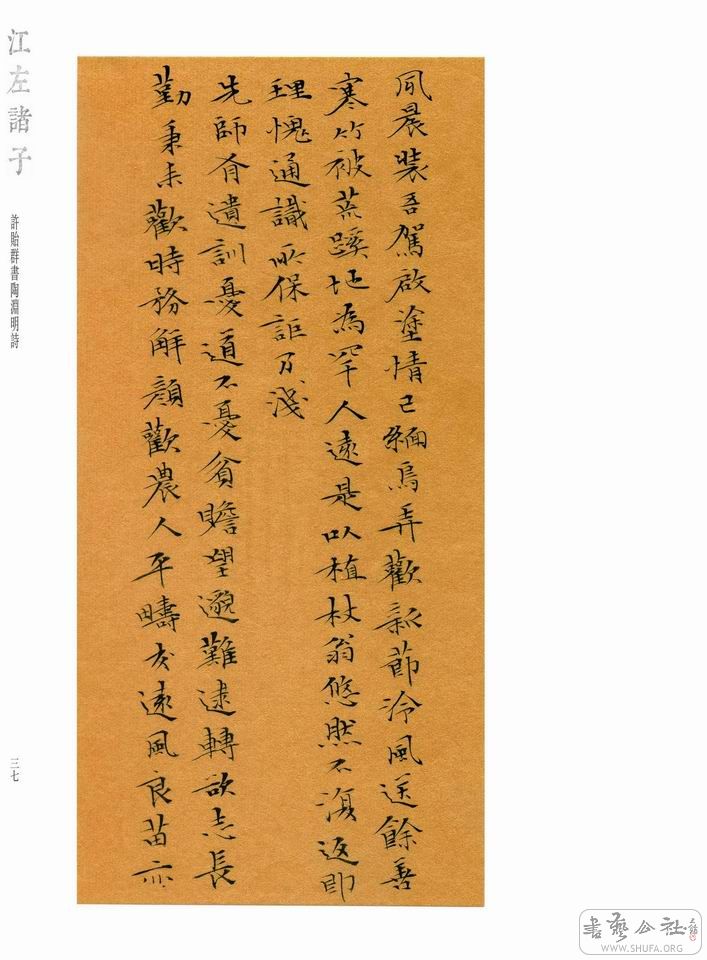 夙晨裝吾駕啟塗情已緬鳥弄歡新節泠風送餘善
寒竹被荒蹊地為罕人遠是以植杖翁悠然不復返即
理愧通識所保詎乃淺
先師有遺訓憂道不憂貧瞻望邈難逮轉欲志長
勤秉耒歡時務解顏歡農人平疇交遠風良苗亦
江左諸子
許貽群書陶淵明詩
三七
書藝公社
WWW.SHUFA.ORG